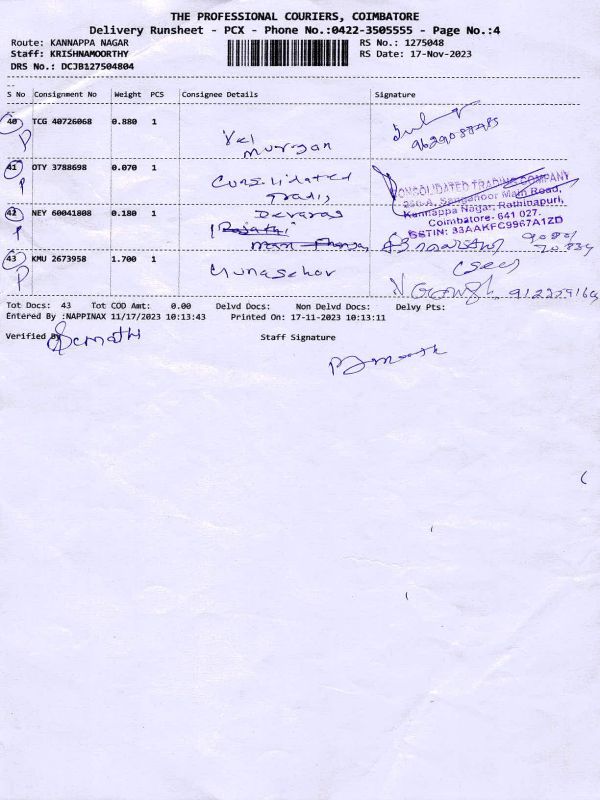 THE PROFESSIONAL COURIERS, COIMBATORE
Delivery Runsheet - PCX - Phone No.:0422-3505555 - Page No.:4
Route: KANNAPPA NAGAR
Staff: KRISHNAMOORTHY
DRS No.: DCJB127504804
RS No.: 1275048
RS Date: 17-Nov-2023
S No Consignment No Weight PCS Consignee Details Signature
40 TCG 40726068 0.880 1
P
Vel
Murugan
41 OTY 3788698 0.070 1
P
Consolidated
Trading
CONSOLIDATED TRADING COMPANY
Sanganoor Main Road,
Kannappa Nagar, Rathinapuri,
Coimbatore- 641 027.
GSTIN: 33AAKFC9967A1ZD
42 NEY 60041808 0.180 1
P
Devaraj
43 KMU 2673958 1.700 1
P
Gunasekar
Tot Docs: 43 Tot COD Amt: 0.00 Delvd Docs: Non Delvd Docs: Delvy Pts:
Entered By :NAPPINAX 11/17/2023 10:13:43 Printed On: 17-11-2023 10:13:11
Verified By
Staff Signature